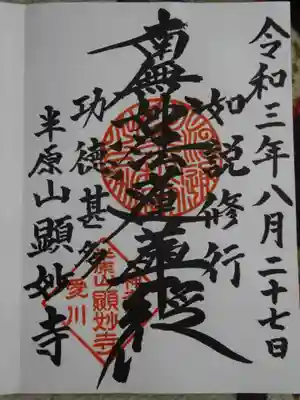 令和三年八月二十七日
如説修行
南無妙法蓮華経
功徳甚多
半原山顕妙寺
半原山顕妙寺
愛川